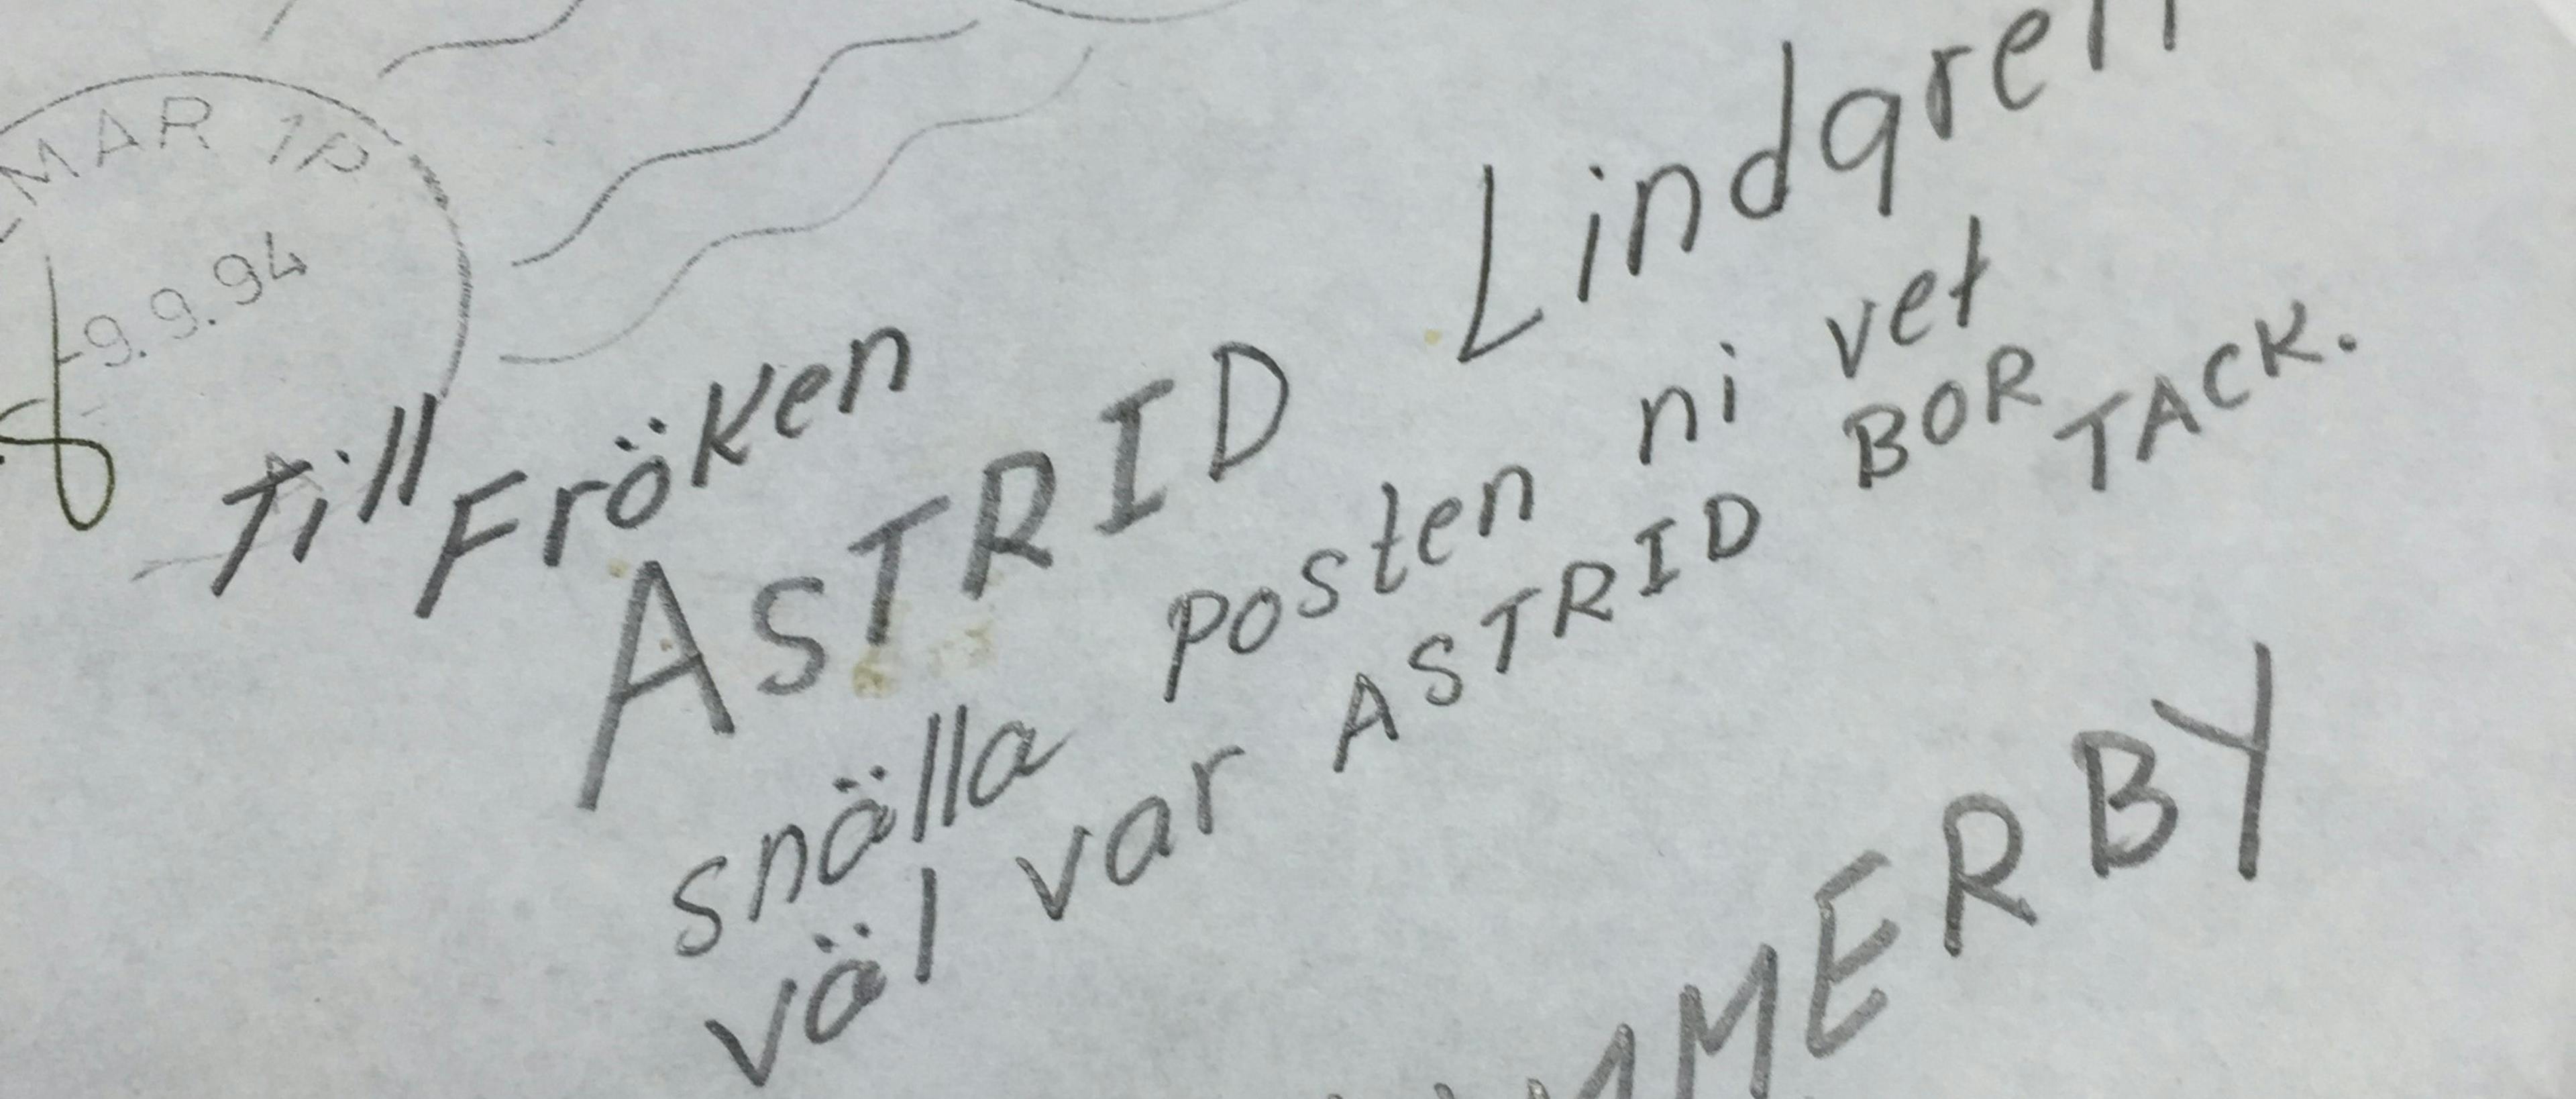 MAR 1P
-9.9.94
Till Fröken
ASTRID Lindgren
snälla posten ni vet
väl var ASTRID BOR TACK.
MMERBY